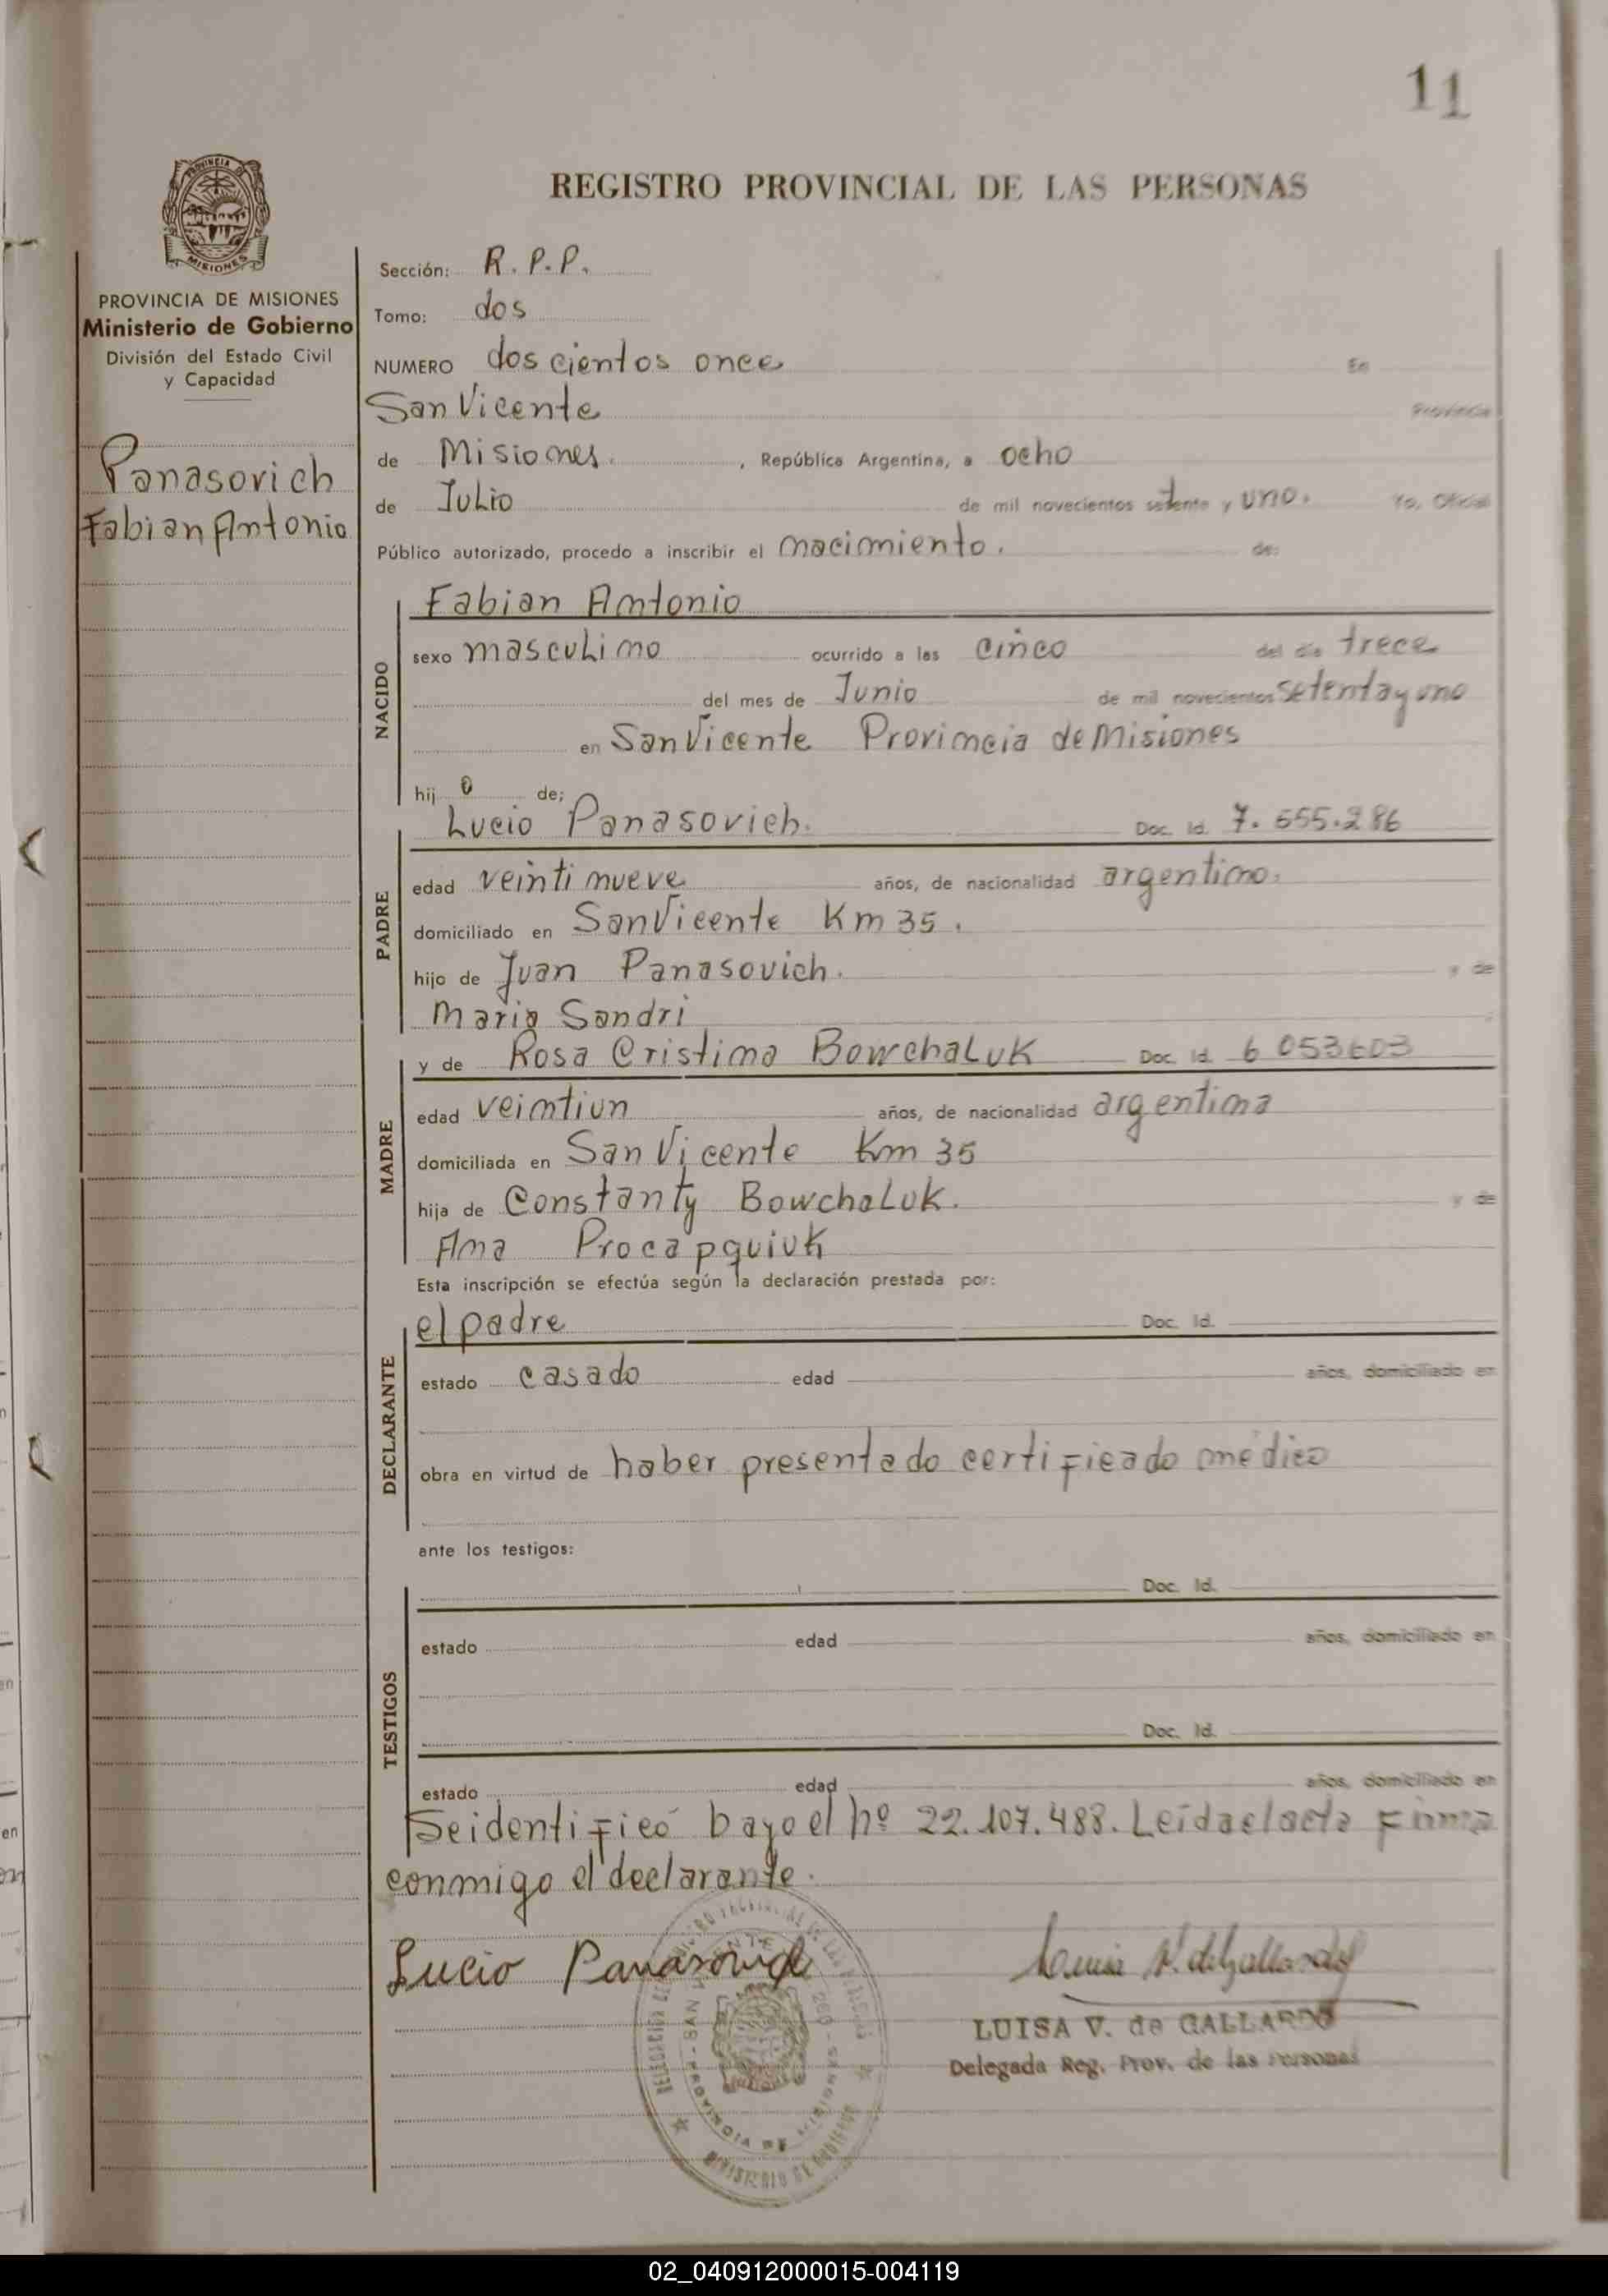 11
REGISTRO PROVINCIAL DE LAS PERSONAS
PROVINCIA DE MISIONES
Ministerio de Gobierno
División del Estado Civil
y Capacidad
Panasovich
Fabian Antonio
Sección: R.P.P.
Tomo: dos
NUMERO doscientos once En
San Vicente Provincia
de Misiones. , República Argentina, a ocho
de Julio de mil novecientos setenta y uno. Yo, Oficial
Público autorizado, procedo a inscribir el nacimiento. de:
NACIDO
Fabian Antonio
sexo masculino ocurrido a las cinco del día trece
del mes de Junio de mil novecientos setenta y uno
en San Vicente Provincia de Misiones
hij o de;
PADRE
Lucio Panasovich. Doc. Id. 7.555.286
edad veintinueve años, de nacionalidad argentino.
domiciliado en San Vicente Km 35.
hijo de Juan Panasovich. y de
Maria Sandri
MADRE
y de Rosa Cristina Bowchaluk Doc. Id. 6 053603
edad veintiun años, de nacionalidad argentina
domiciliada en San Vicente Km 35
hija de Constanty Bowchaluk. y de
Ana Procapquiuk
Esta inscripción se efectúa según la declaración prestada por:
DECLARANTE
el padre Doc. Id.
estado casado edad años, domiciliado en
obra en virtud de haber presentado certificado médico
ante los testigos:
TESTIGOS
Doc. Id.
estado edad años, domiciliado en
Doc. Id.
estado edad años, domiciliado en
Se identificó bajo el nº 22.107.488. Leída el acta firma
conmigo el declarante.
Lucio Panasovich
LUISA V. de GALLARDO
Delegada Reg. Prov. de las Personas
PROVINCIA DE MISIONES
MINISTERIO DE GOBIERNO
02_040912000015-004119